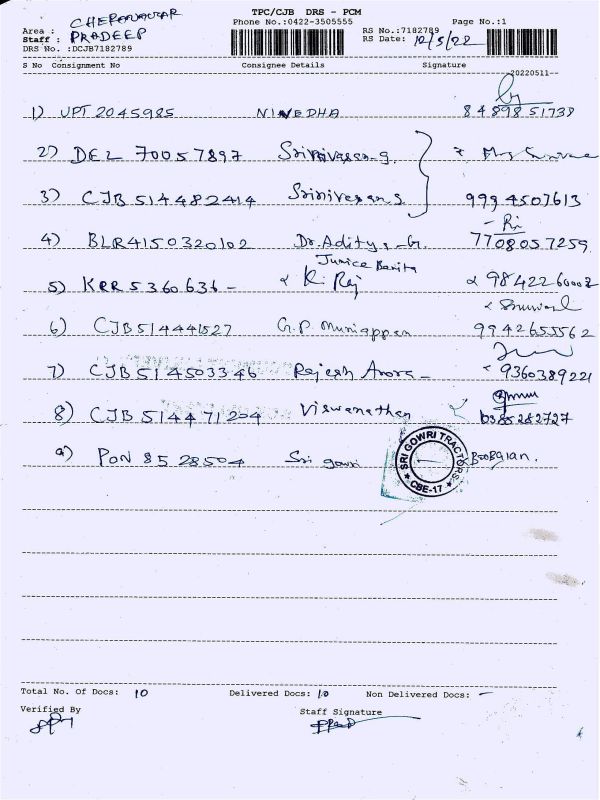 TPC/CJB DRS - PCM
Area : CHERANAGAR Phone No.:0422-3505555 RS No.:7182789 Page No.:1
Staff : PRADEEP RS Date: 12/5/22
DRS No. :DCJB7182789
S No Consignment No Consignee Details Signature
20220511
1) UPT 2045985 NIVEDHA 84898 51738
2) DEL 70057897 Srinivasan.g.
3) CJB 514482414 Srinivasan g 999 4507613
4) BLR4150320102 Dr. Aditya, G. 7708057259
Junice Benita
5) KRR 5360636 - K. Raj 9842260002
6) CJB514441527 G.P Muniappan 9942655562
7) CJB 514503346 Rajesh Arora - 9360389221
8) CJB 5144 71204 Viswanathan 6385282727
9) PON 8528504 Sri gowri
SRI GOWRI TRACTORS
CBE-17
Total No. Of Docs: 10 Delivered Docs: 10 Non Delivered Docs: -
Verified By Staff Signature